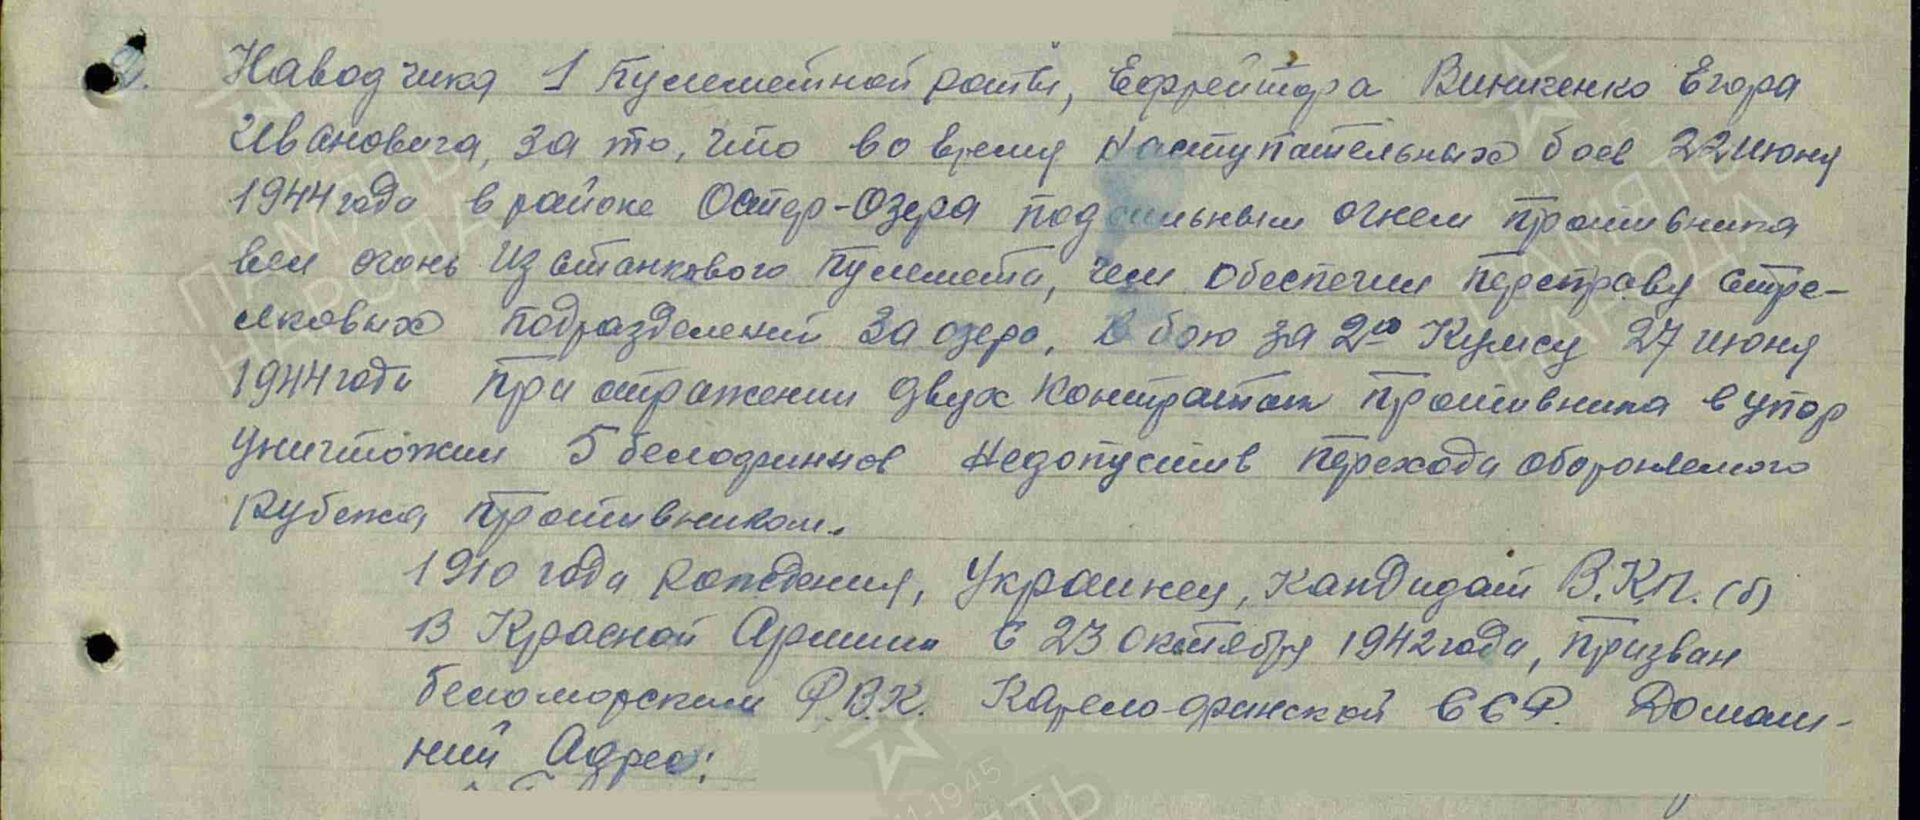 2. Наводчика 1 пулеметной роты, Ефрейтора Виниченко Егора
Ивановича, за то, что во время наступательных боев 22 июня
1944 года в районе Остер-Озера под сильным огнем противника
вел огонь из станкового пулемета, чем обеспечил переправу стре-
лковых подразделений за озеро. В бою за 2ую Кумсу 27 июня
1944 года при отражении двух контратак противника в упор
уничтожил 5 белофиннов недопустив перехода обороняемого
рубежа противником.
1910 года рождения, Украинец, Кандидат В.К.П.(б)
В Красной Армии с 23 октября 1942 года, призван
беломорским Р.В.К. Карело-финской ССР. Домаш-
ний Адрес:
ПАМЯТЬ
НАРОДА
ПАМЯТЬ
НАРОДА